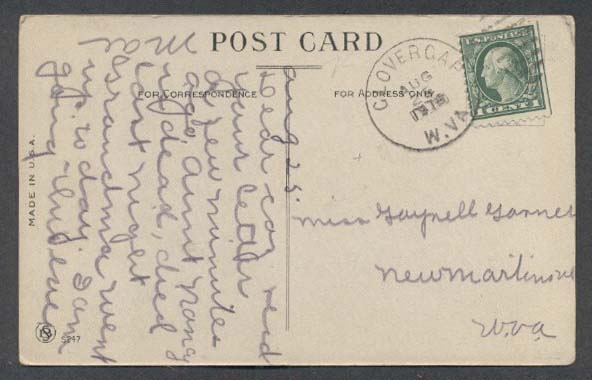 POST CARD
FOR CORRESPONDENCE
FOR ADDRESS ONLY
MADE IN U.S.A.
S247
CLOVER GAP
AUG
W.VA.
U.S. POSTAGE
1 CENT 1
Aug 25.
Dear coz recd
your letter
a few minutes
ago, aunt Nancy
is dead, died
last night
Grandma went
up to day. I am
going this eve
Mae
Miss Gaynell Garner
New Martinsvle
W.Va